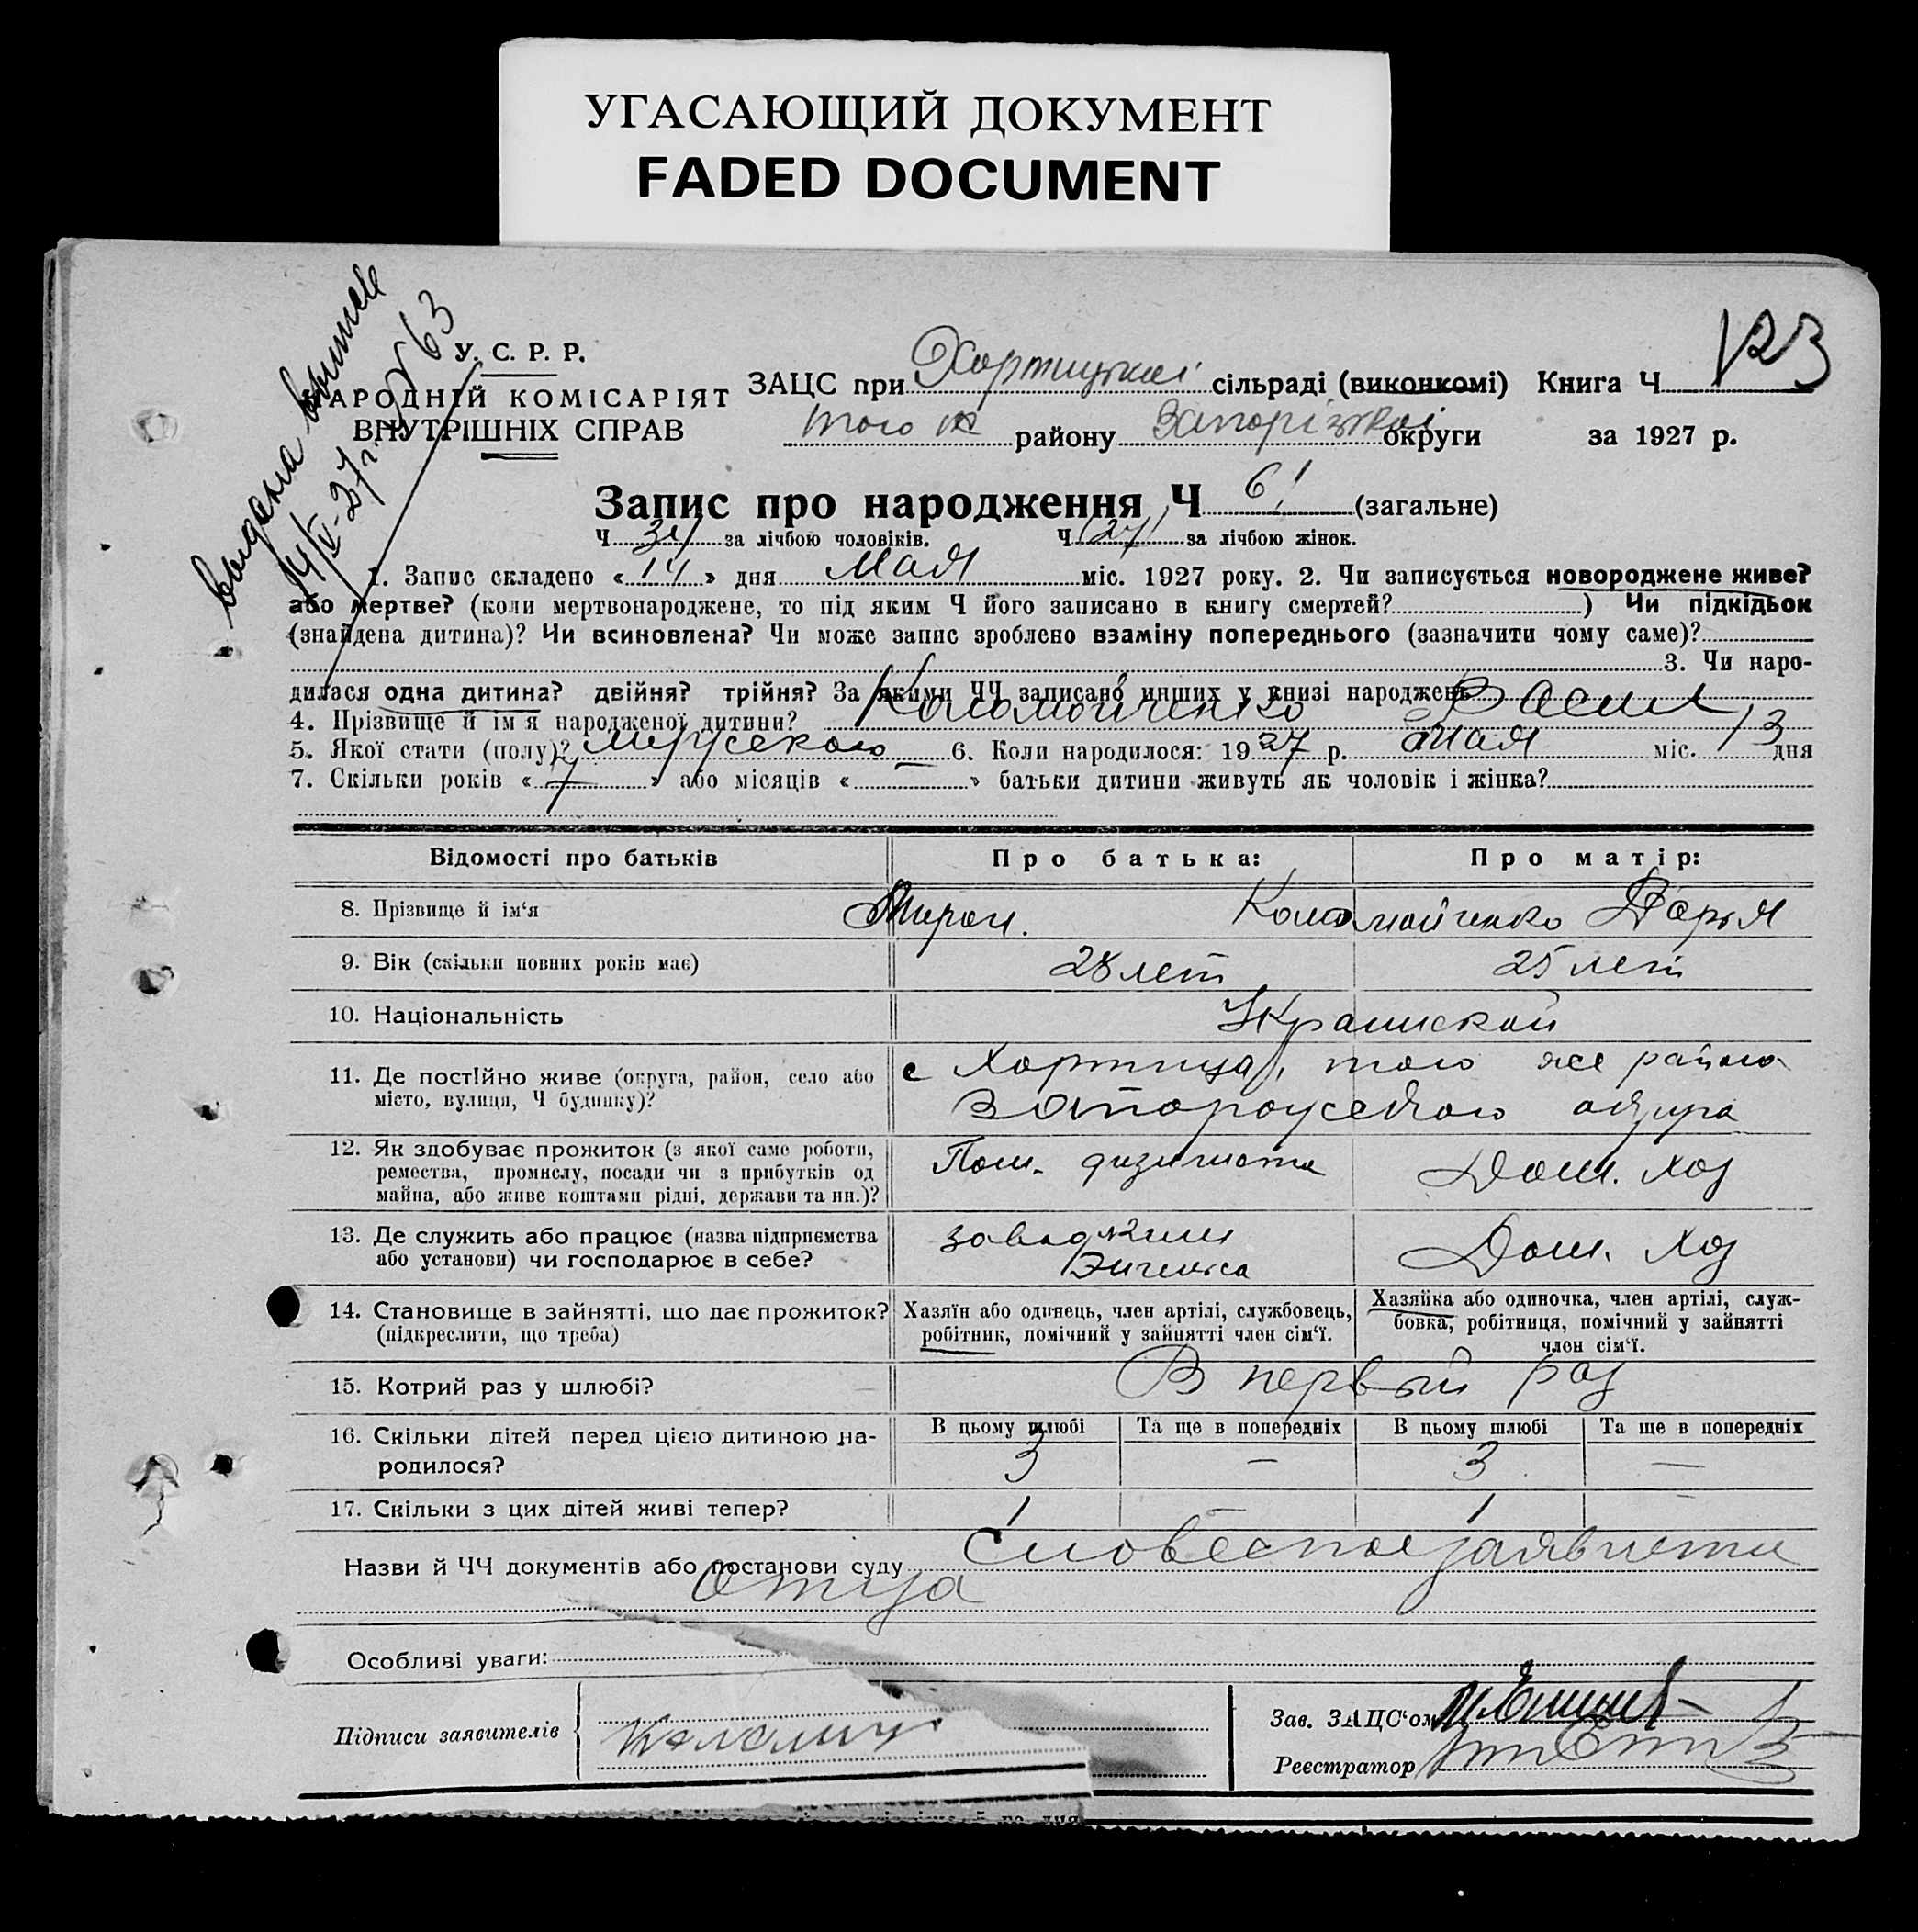 УГАСАЮЩИЙ ДОКУМЕНТ
FADED DOCUMENT
выдана
14/V-27 г. № 63
123
У. С. Р. Р.
НАРОДНІЙ КОМІСАРІЯТ
ВНУТРІШНІХ СПРАВ
ЗАЦС при Хортицькій сільраді (виконкомі) Книга Ч
того ж району Запорізької округи за 1927 р.
Запис про народження Ч 61 (загальне)
Ч 34 за лічбою чоловіків. Ч (27) за лічбою жінок.
1. Запис складено «14» дня Мая міс. 1927 року. 2. Чи записується новороджене живе?
або мертве? (коли мертвонароджене, то під яким Ч його записано в книгу смертей?) Чи підкідьок
(знайдена дитина)? Чи всиновлена? Чи може запис зроблено взаміну попереднього (зазначити чому саме)?
3. Чи наро-
дилася одна дитина? двійня? трійня? За якими ЧЧ записано инших у книзі народжень
4. Прізвище й ім'я народженої дитини? Коломойченко Васил
5. Якої стати (полу)? мужского 6. Коли народилося: 1927 р. мая міс. 13 дня
7. Скільки років «7» або місяців «» батьки дитини живуть як чоловік і жінка?
Відомості про батьків Про батька: Про матір:
8. Прізвище й ім‘я Мирон. Коломойченко Дарья
9. Вік (скільки повних років має) 28 лет 25 лет
10. Національність Украинской
11. Де постІйно живе (округа, район, село або с Хортица, того же района
місто, вулиця, Ч будинку)? Запорожского округа
12. Як здобуває прожиток (з якої саме роботи, Пом.
ремества, промислу, посади чи з прибутків од Дом. хоз
майна, або живе коштами рідні, держави та ин.)?
13. Де служить або працює (назва підприємства завод
або установи) чи господарює в себе? Энгельса Дом. хоз
14. Становище в зайнятті, що дає прожиток? Хазяїн або одинець, член артілі, службовець, Хазяйка або одиночка, член артілі, служ-
(підкреслити, що треба) робітник, помічний у зайнятті член сім‘ї. бовка, робітниця, помічний у зайнятті
член сім‘ї.
15. Котрий раз у шлюбі? В первый раз
16. Скільки дітей перед цією дитиною на- В цьому шлюбі Та ще в попередніх В цьому шлюбі Та ще в попередніх
родилося? 3 — 3 —
17. Скільки з цих дітей живі тепер? 1 — 1 —
Назви й ЧЧ документів або постанови суду Словесное заявление
отца
Особливі уваги:
Підписи заявителів
Зав. ЗАЦС‘ом
Реєстратор